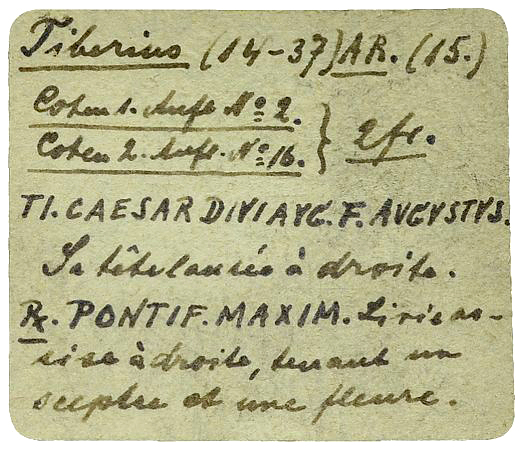 Tiberius (14-37) AR. (15.)
Cohen 1. Aufl. No 2. } 2fr.
Cohen 2. Aufl. No 16.
TI. CAESAR DIVI AVG. F. AVGVSTVS.
Sa tête laurée à droite.
R. PONTIF. MAXIM. Livie as-
sise à droite, tenant un
sceptre et une fleure.